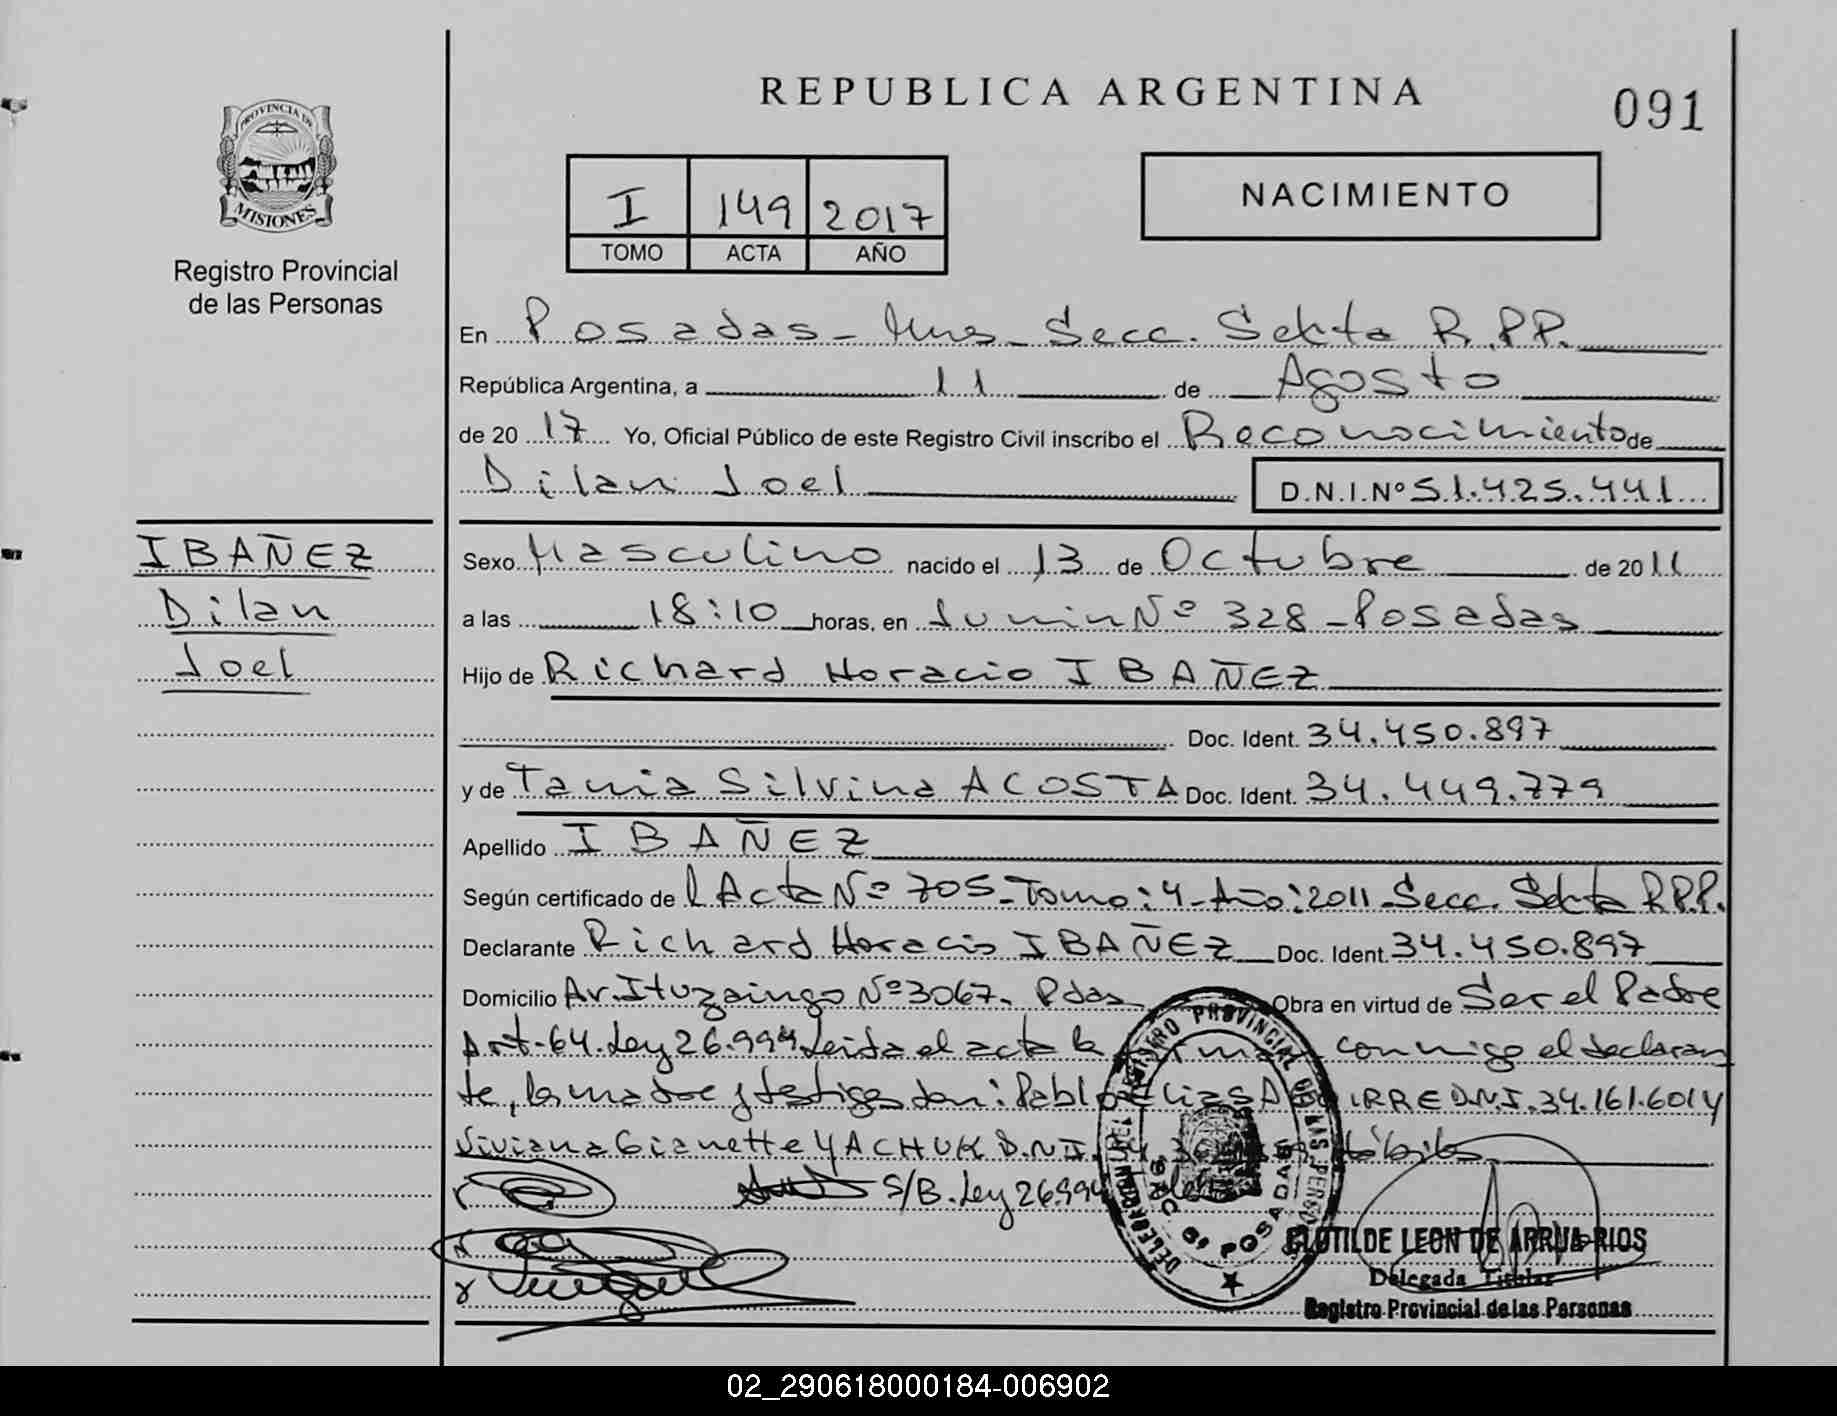 REPUBLICA ARGENTINA
091
PROVINCIA DE
MISIONES
Registro Provincial
de las Personas
I 149 2017
TOMO ACTA AÑO
NACIMIENTO
En Posadas - Mnes - Secc. Sexta R.P.P.
República Argentina, a 11 de Agosto
de 2017 Yo, Oficial Público de este Registro Civil inscribo el Reconocimiento de
Dilan Joel D.N.I.Nº 51.425.441
IBAÑEZ
Dilan
Joel
Sexo Masculino nacido el 13 de Octubre de 2011
a las 18:10 horas, en Junin Nº 328 - Posadas
Hijo de Richard Horacio IBAÑEZ
Doc. Ident. 34.450.897
y de Tania Silvina ACOSTA Doc. Ident. 34.449.779
Apellido IBAÑEZ
Según certificado de l Acta Nº 705 - Tomo: 4 - Año: 2011 - Secc. Sexta R.P.P.
Declarante Richard Horacio IBAÑEZ Doc. Ident. 34.450.897
Domicilio Av. Ituzaingo Nº 3067. Pdas Obra en virtud de Ser el Padre
Art. 64. Ley 26.994 Leida el acta la conmigo el declaran
te, la madre y testigos don: Pablo Elias D.N.I. 34.161.601 y
Viviana Gianette YACHUK D.N.I. 34.
S/B. Ley 26.994
REGISTRO PROVINCIAL DE LAS PERSONAS
DELEGACION
SECC 6ª POSADAS
CLOTILDE LEON DE ARRUA RIOS
Delegada Titular
Registro Provincial de las Personas
02_290618000184-006902